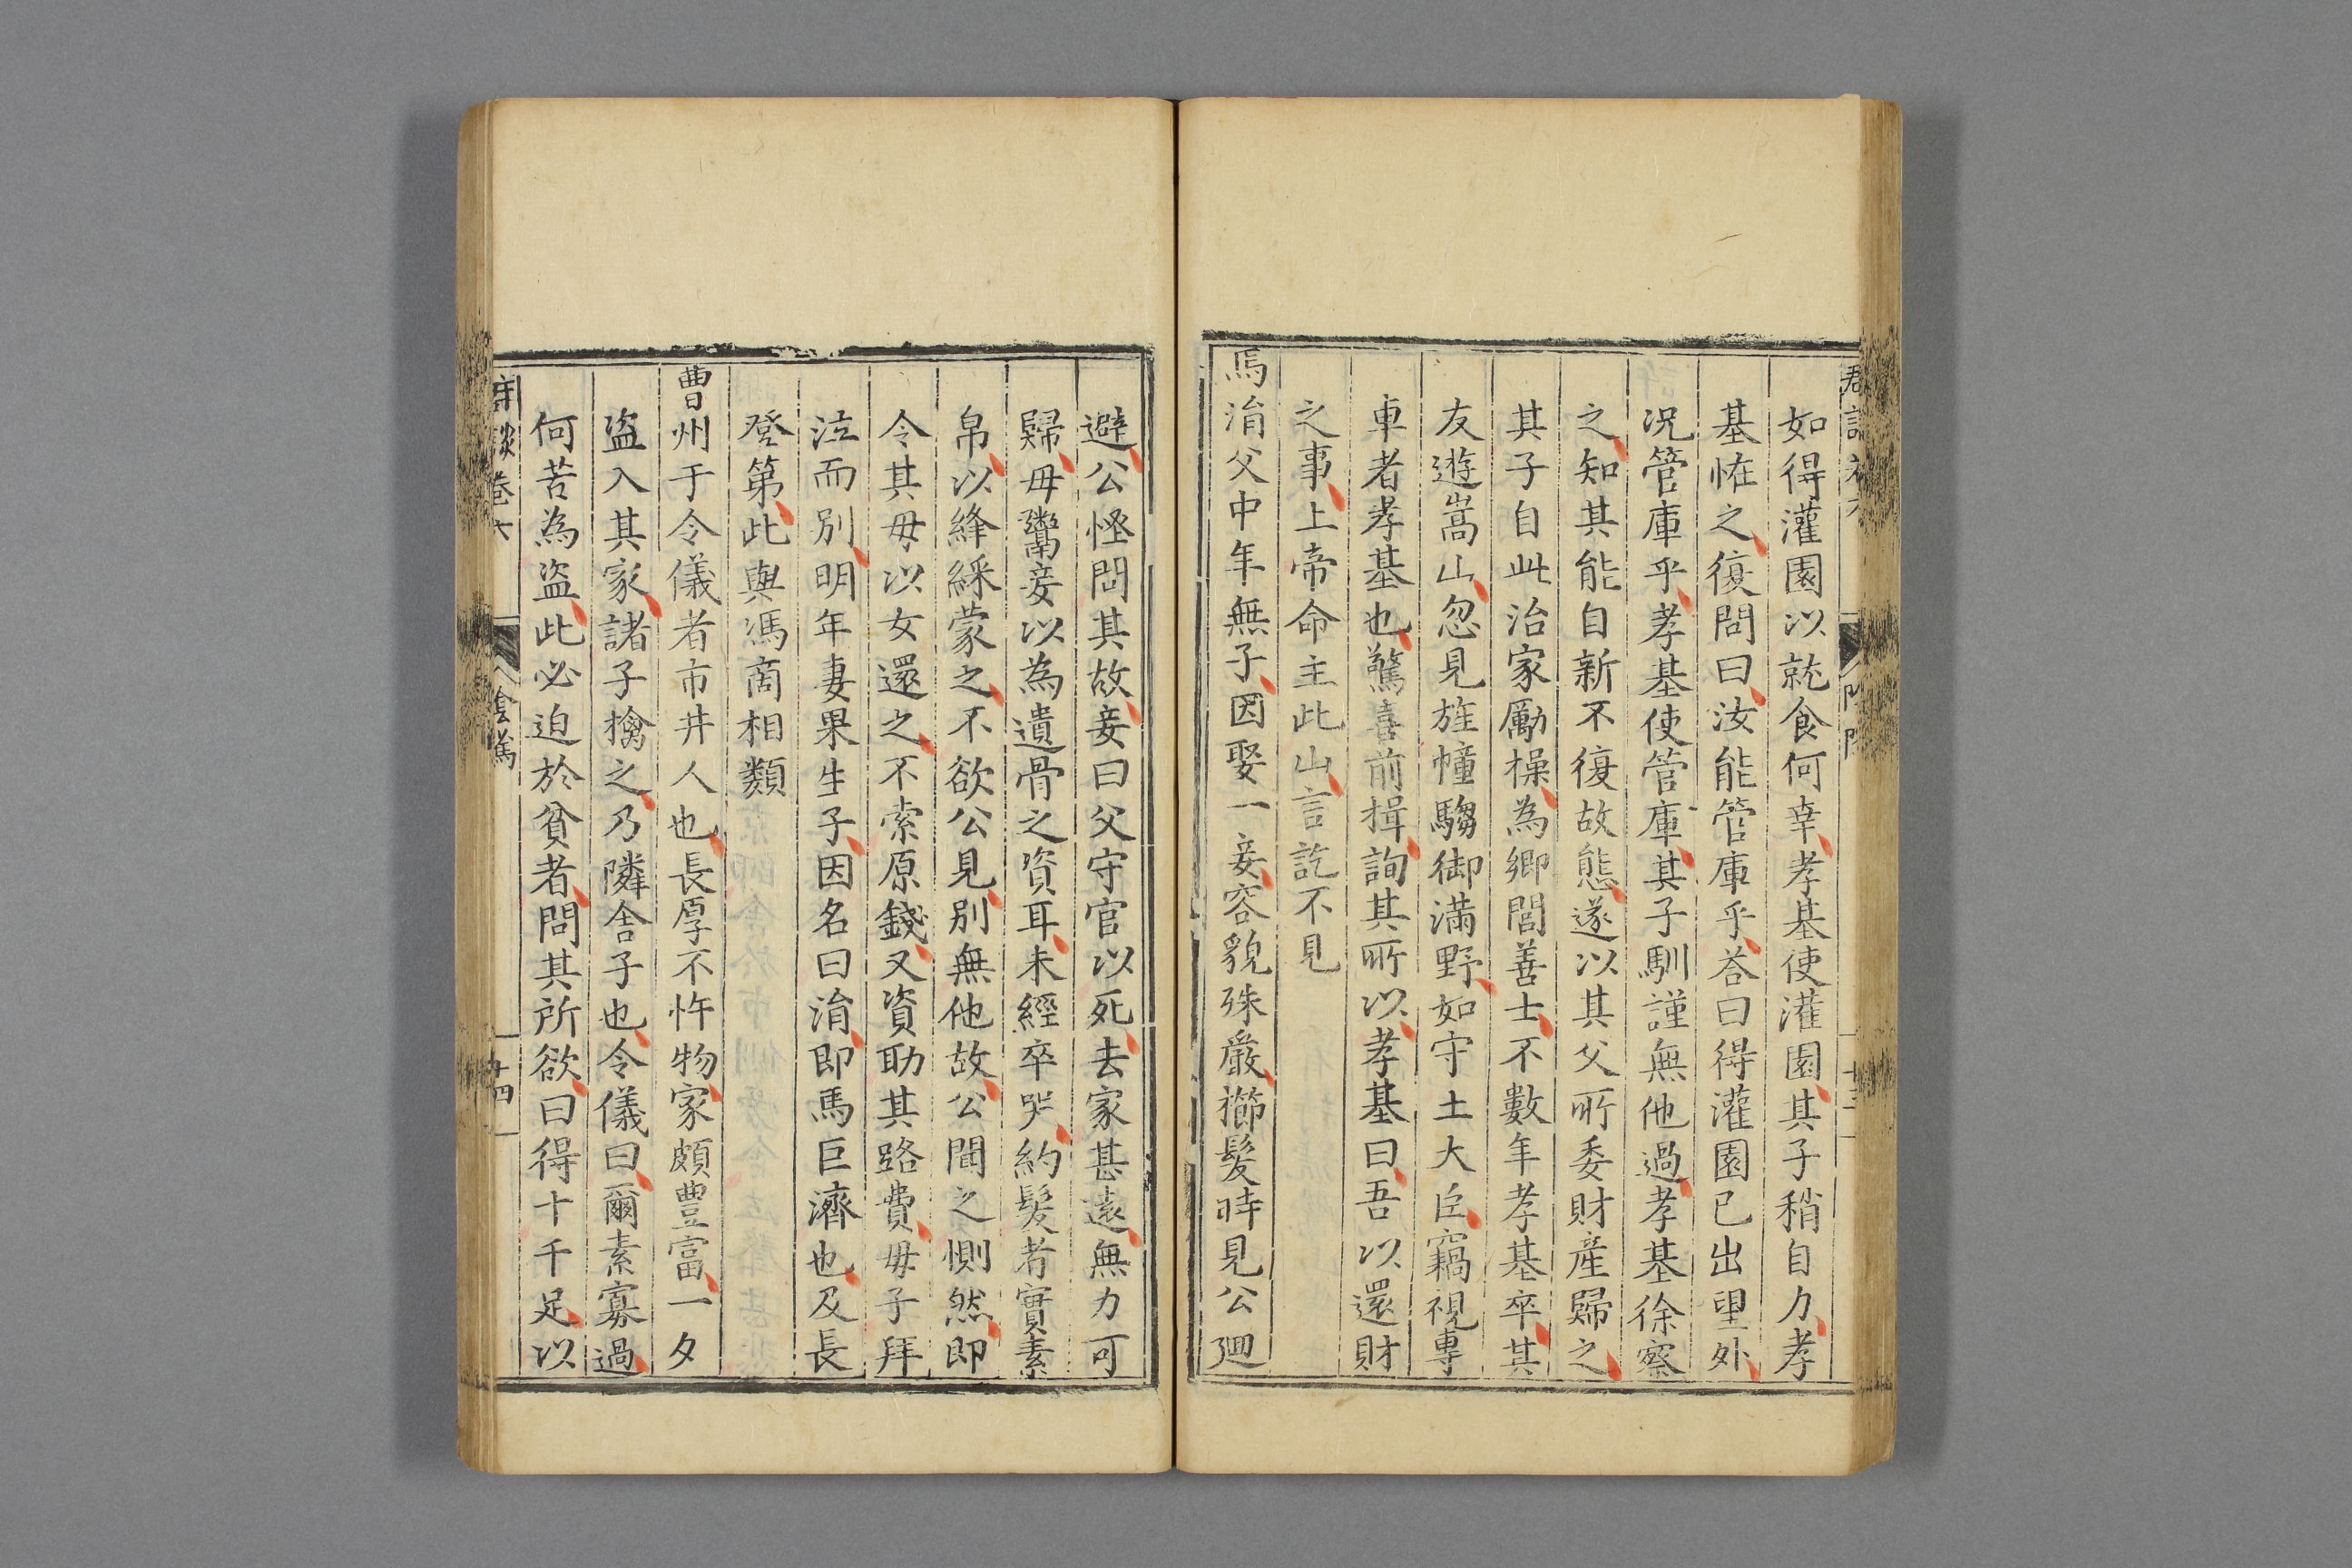 如得灌園以就食何幸孝基使灌園其子稍自力孝
基恠之復問曰汝能管庫乎荅曰得灌園已出望外
况管庫乎孝基使管庫其子馴謹無他過孝基徐察
之知其能自新不復故態遂以其父所委財產歸之
其子自此治家厲操為鄉閭善士不數年孝基卒其
友遊嵩山忽見旌幢騶御滿野如守土大臣竊視專
車者孝基也驚喜前揖詢其所以孝基曰吾以還財
之事上帝命主此山言訖不見
馬涓父中年無子因娶一妾容貌殊嚴櫛髮時見公廻
避公怪問其故妾曰父守官以死去家甚遠無力可
歸毋鬻妾以為遺骨之資耳未經卒哭約髮者實素
帛以絳綵蒙之不欲公見別無他故公聞之惻然即
令其毋以女還之不索原錢又資助其路費毋子拜
泣而別明年妻果生子因名曰涓即馬巨濟也及長
登第此與馮商相類
曹州于令儀者市井人也長厚不忤物家頗豊富一夕
盜入其家諸子擒之乃隣舍子也令儀曰爾素寡過
何苦為盜此必迫於貧者問其所欲曰得十千足以
談卷六
陰騭
十四